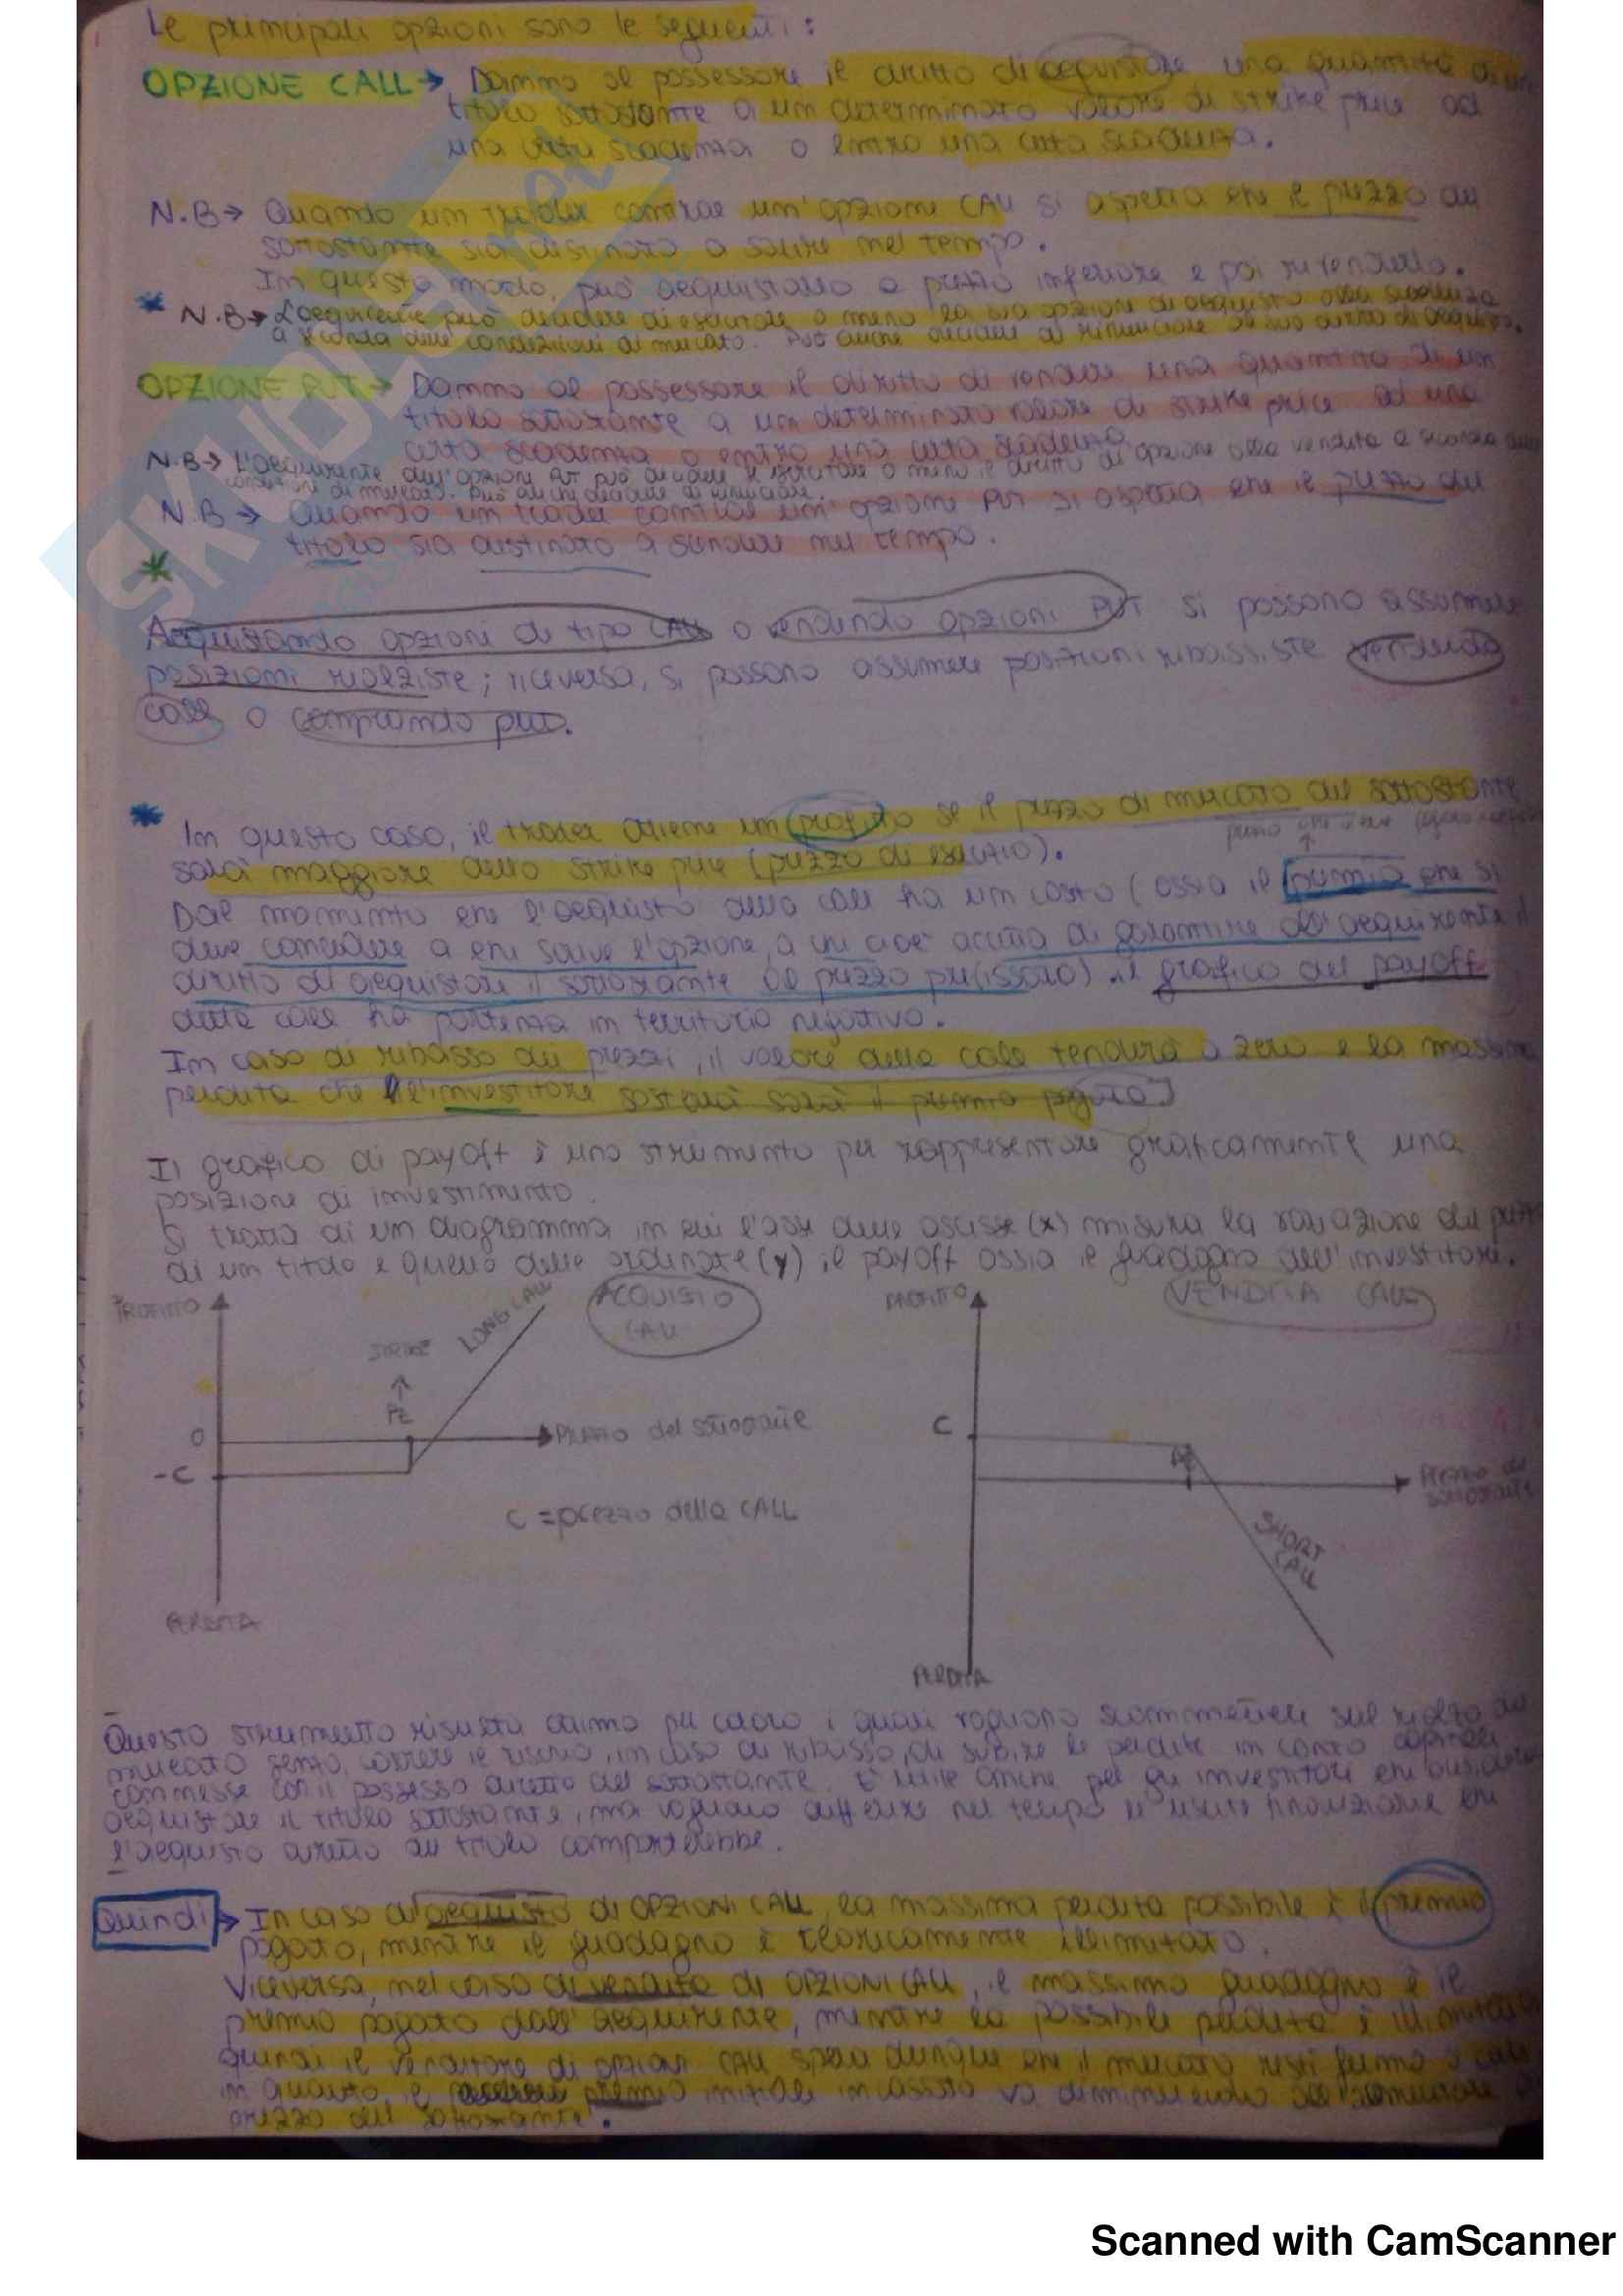 Le principali opzioni sono le seguenti:
OPZIONE CALL → Danno al possessore il diritto di acquistare una quantità di un
titolo sottostante a un determinato valore di strike price ad
una certa scadenza o entro una certa scadenza.
N.B → Quando un trader contrae un'opzione CALL si aspetta che il prezzo del
sottostante sia destinato a salire nel tempo.
In questo modo, può acquistarlo a prezzo inferiore e poi rivenderlo.
* N.B → L'acquirente può decidere di esercitare o meno la sua opzione di acquisto alla scadenza
a seconda delle condizioni di mercato. Può anche decidere di rinunciare al suo diritto di acquisto.
OPZIONE PUT → Danno al possessore il diritto di vendere una quantità di un
titolo sottostante a un determinato valore di strike price ad una
certa scadenza o entro una certa scadenza.
N.B → L'acquirente dell'opzione PUT può decidere di esercitare o meno il diritto di opzione alla vendita a seconda delle
condizioni di mercato. Può anche decidere di rinunciare.
N.B → Quando un trader contrae un'opzione PUT si aspetta che il prezzo del
titolo sia destinato a scendere nel tempo.
*
Acquistando opzioni di tipo CALL o vendendo opzioni PUT si possono assumere
posizioni rialziste; viceversa, si possono assumere posizioni ribassiste vendendo
call o comprando put.
* In questo caso, il trader ottiene un profitto se il prezzo di mercato del sottostante
prezzo che deve
sarà maggiore dello strike price (prezzo di esercizio).
Dal momento che l'acquisto della call ha un costo (ossia il premio che si
deve concedere a chi scrive l'opzione, a chi cioè accetta di garantire all'acquirente il
diritto di acquistare il sottostante al prezzo prefissato), il grafico del payoff
della call ha partenza in territorio negativo.
In caso di ribasso dei prezzi, il valore della call tenderà a zero e la massima
perdita che l'investitore sosterrà sarà il premio pagato]
Il grafico di payoff è uno strumento per rappresentare graficamente una
posizione di investimento.
Si tratta di un diagramma in cui l'asse delle ascisse (x) misura la variazione del prezzo
di un titolo e quello delle ordinate (y) il payoff ossia il guadagno dell'investitore.
PROFITTO
LONG CALL
ACQUISTO
CALL
STRIKE
PE
0
-C
PREZZO del sottostante
C = prezzo della CALL
PERDITA
PROFITTO
VENDITA CALL
C
PE
PREZZO del
sottostante
SHORT
CALL
PERDITA
Questo strumento risulta ottimo per coloro i quali vogliono scommettere sul rialzo del
mercato senza correre il rischio, in caso di ribasso, di subire le perdite in conto capitale
connesse con il possesso diretto del sottostante. È utile anche per gli investitori che desiderano
acquistare il titolo sottostante, ma vogliono differire nel tempo le uscite finanziarie che
l'acquisto diretto del titolo comporterebbe.
Quindi → In caso di acquisto di OPZIONI CALL, la massima perdita possibile è il premio
pagato, mentre il guadagno è teoricamente illimitato.
Viceversa, nel caso di vendita di OPZIONI CALL, il massimo guadagno è il
premio pagato dall'acquirente, mentre la possibile perdita è illimitata
quindi il venditore di opzioni CALL spera dunque che il mercato resti fermo o cali
in quanto il premio iniziale incassato va diminuendo all'aumentare del
prezzo del sottostante.
SKUOLA.net
Scanned with CamScanner